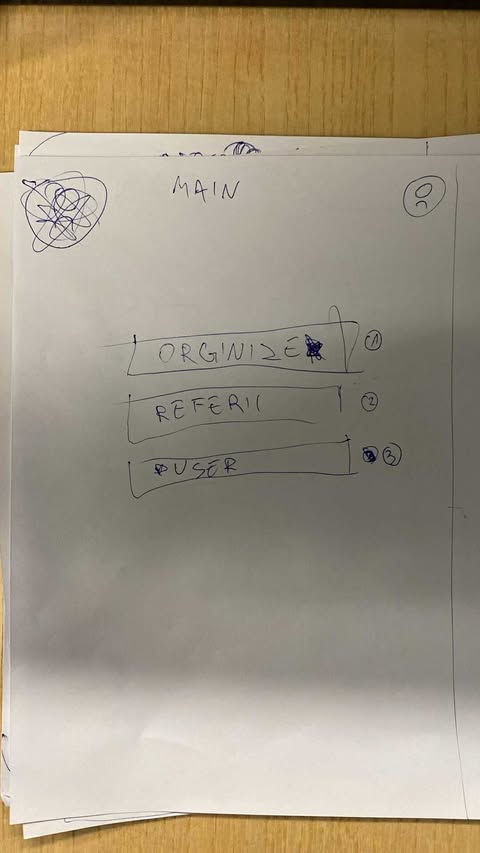 MAIN
ORGINIZE
①
REFERII
②
USER
③